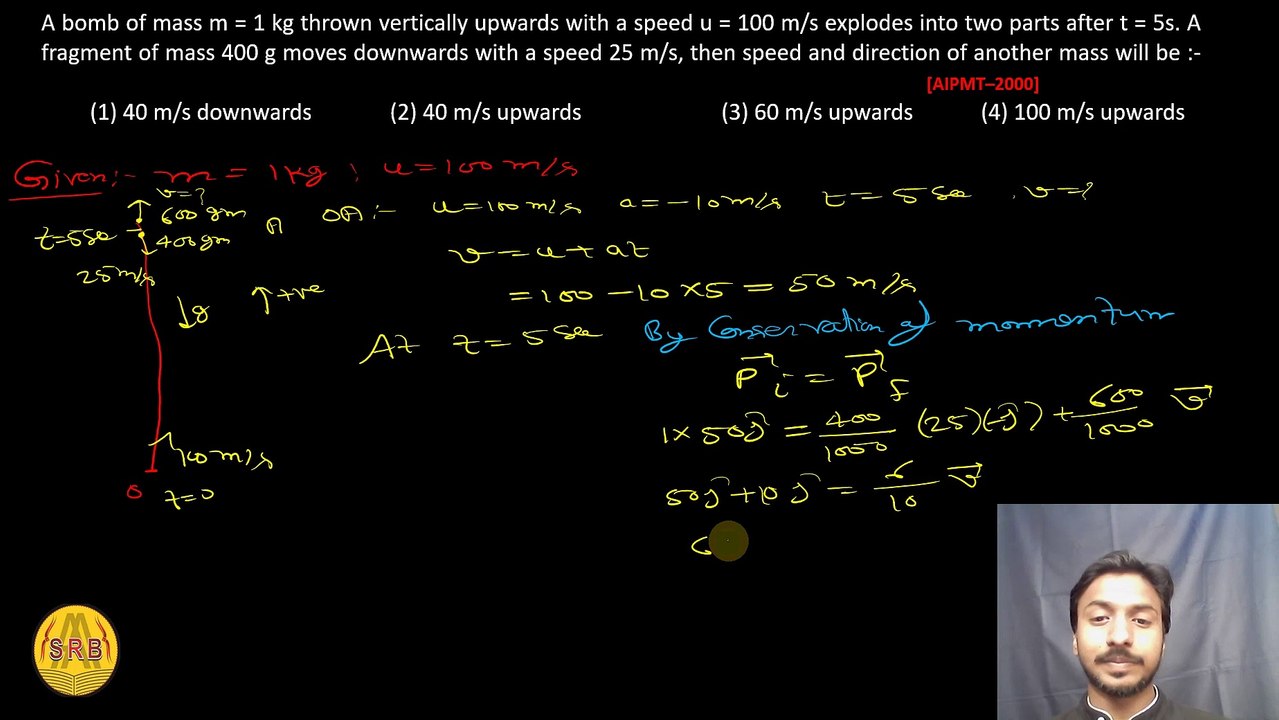 A bomb of mass m = 1 kg thrown vertically upwards with a speed u = 100 m/s explodes into two parts after t = 5s. A
fragment of mass 400 g moves downwards with a speed 25 m/s, then speed and direction of another mass will be :-
[AIPMT–2000]
(1) 40 m/s downwards (2) 40 m/s upwards (3) 60 m/s upwards (4) 100 m/s upwards
Given:- m = 1kg ; u = 100 m/s
v=?
600 gm
t=5 sec
400 gm
25 m/s
A OA:- u=100 m/s a=-10 m/s t= 5 sec , v=?
v = u + at
= 100 - 10 × 5 = 50 m/s
↓g ↑+ve
At t = 5 sec By Conservation of momentum
P⃗i = P⃗f
1 × 50ĵ = 400/1000 (25)(-ĵ) + 600/1000 v⃗
50ĵ + 10ĵ = 6/10 v⃗
100 m/s
O t=0
6
SRB